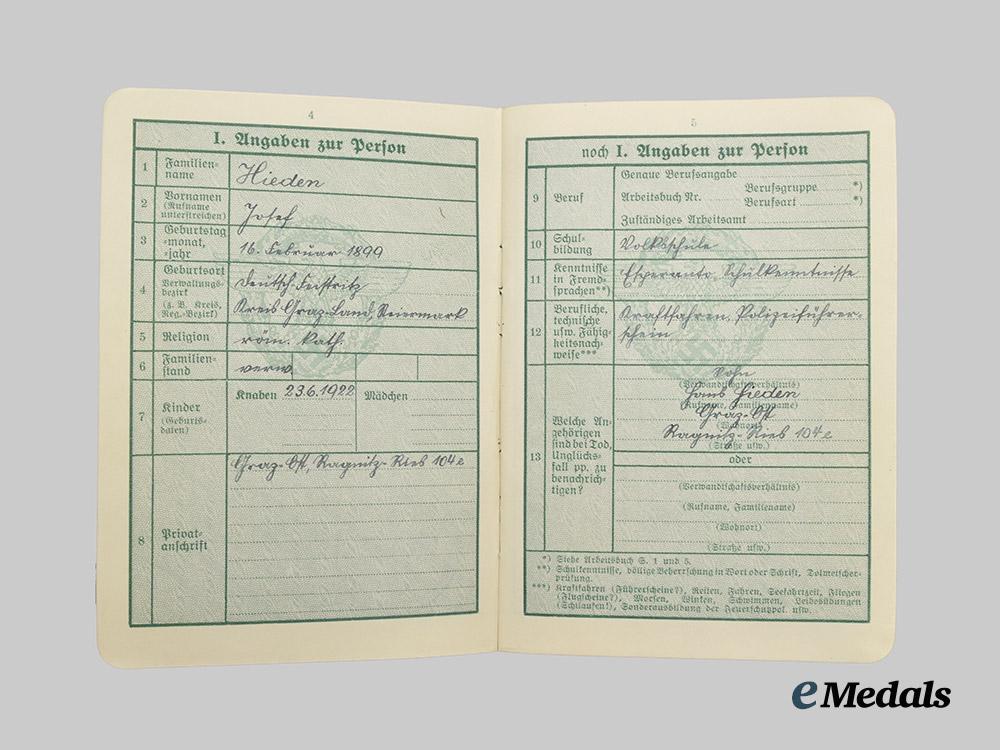 4
I. Angaben zur Person
1 Familien=
name
Hieden
2 Vornamen
(Rufname
unterstreichen)
Josef
3 Geburtstag
=monat,
=jahr
16. Februar 1899
4 Geburtsort
Verwaltungs=
bezirk
(z. B. Kreis,
Reg.=Bezirk)
Deutsch-Feistritz
Kreis Graz-Land, Steiermark
5 Religion
röm. kath.
6 Familien=
stand
verw.
7 Kinder
(Geburts=
daten)
Knaben 23.6.1922 Mädchen
8 Privat=
anschrift
Graz-Ost, Ragnitz-Ries 104e
5
noch I. Angaben zur Person
9 Beruf
Genaue Berufsangabe
Berufsgruppe *)
Arbeitsbuch Nr.
Berufsart *)
Zuständiges Arbeitsamt
10 Schul=
bildung
Volksschule
11 Kenntnisse
in Fremd=
sprachen**)
Esperanto, Schulkenntnisse
12 Berufliche,
technische
usw. Fähig=
keitsnach=
weise***
Kraftfahren, Polizeiführer-
schein
13 Welche An=
gehörigen
sind bei Tod,
Unglücks=
fall pp. zu
benachrich=
tigen?
Sohn
(Verwandtschaftsverhältnis)
Hans Hieden
(Rufname, Familienname)
Graz-Ost
(Wohnort)
Ragnitz-Ries 104e
(Straße usw.)
oder
(Verwandtschaftsverhältnis)
(Rufname, Familienname)
(Wohnort)
(Straße usw.)
*) Siehe Arbeitsbuch S. 1 und 5.
**) Schulkenntnisse, völlige Beherrschung in Wort oder Schrift, Dolmetscher=
prüfung.
***) Kraftfahren (Führerscheine?), Reiten, Fahren, Seefahrtzeit, Fliegen
(Flugscheine?), Morsen, Winken, Schwimmen, Leibesübungen
(Schilaufen!), Sonderausbildung der Feuerschuppol. usw.
eMedals